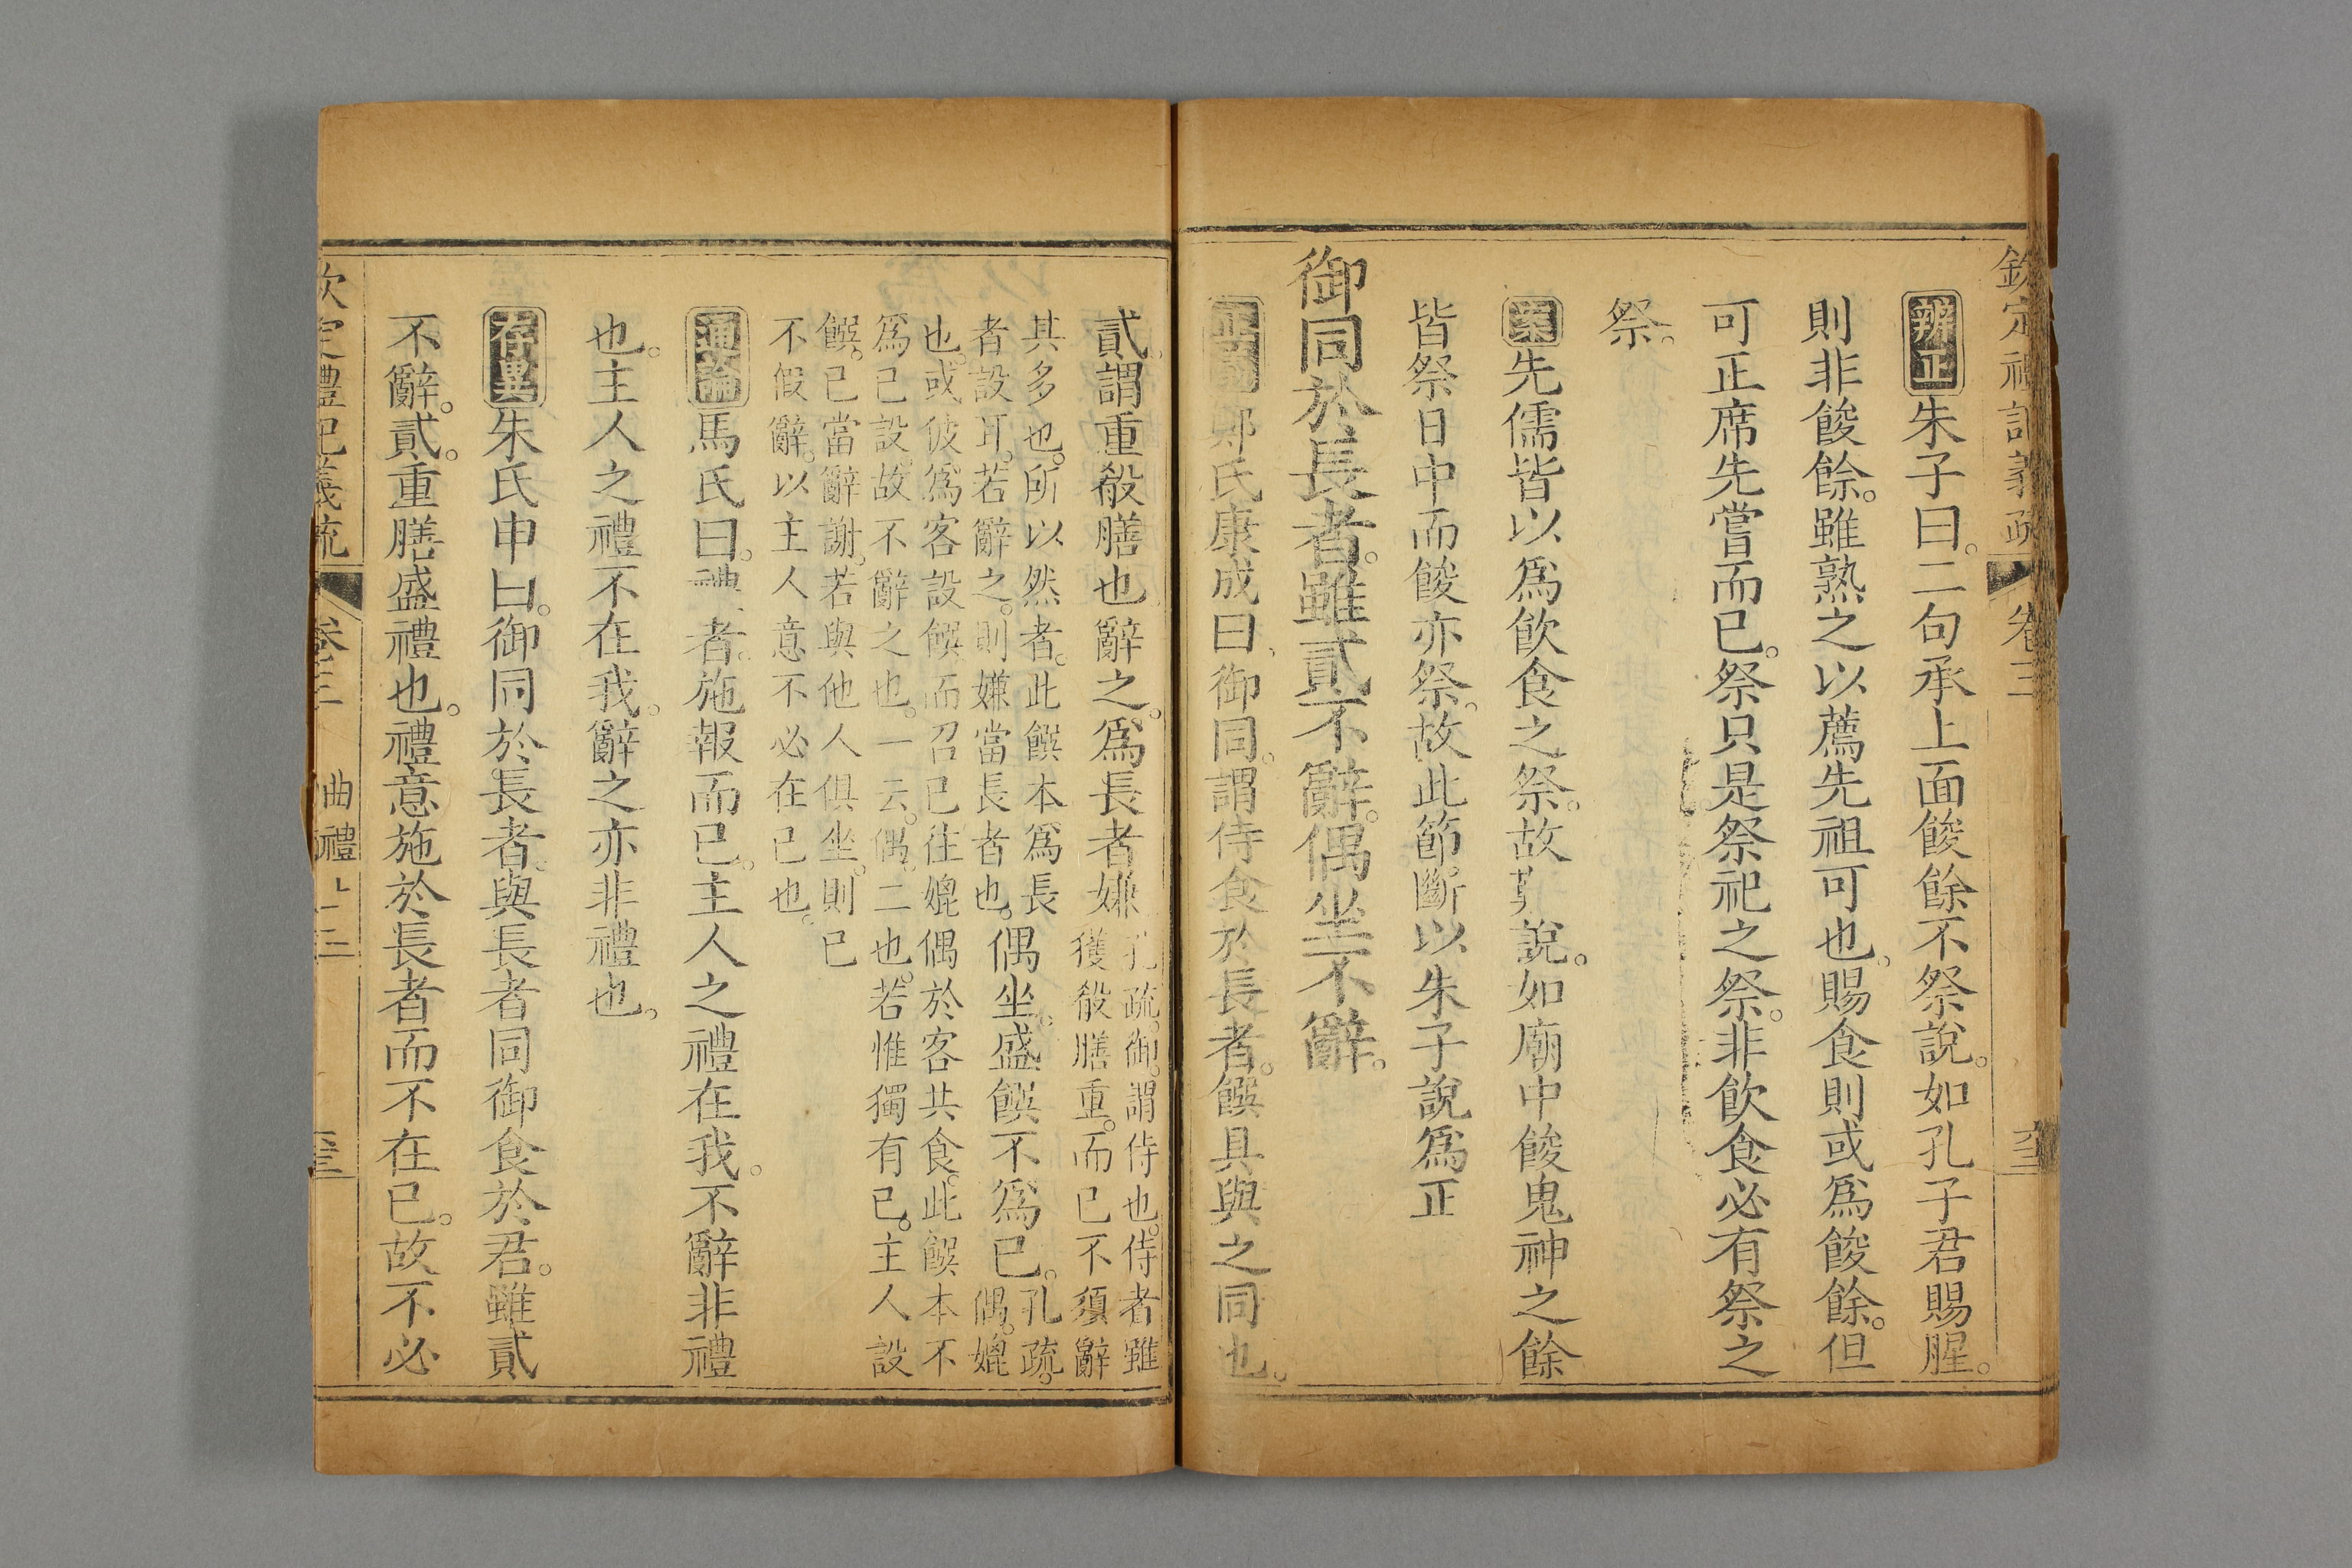 欽定禮記義疏 卷三
辨正朱子曰。二句承上面餕餘不祭說。如孔子君賜腥。
則非餕餘。雖熟之以薦先祖可也。賜食則或爲餕餘。但
可正席先嘗而已。祭只是祭祀之祭。非飲食必有祭之
祭。
案先儒皆以爲飲食之祭。故說。如廟中餕鬼神之餘
皆祭日中而餕亦祭。故此節。斷以朱子說爲正
御同於長者。雖貳不辭。偶坐不辭。
正義鄭氏康成曰、御同。謂侍食於長者。饌具與之同也。
貳。謂重殽膳也。辭之。爲長者嫌
孔疏。御。謂侍也。侍者雖
獲殽膳重。而已不須辭
其多也。所以然者。此饌本爲長
者設耳。若辭之。則嫌當長者也。
偶坐。盛饌不爲已。
孔疏。
偶。媲
也。或彼爲客設饌而召已往媲偶於客共食。此饌本不
爲已設。故不辭之也。一云。偶。二也。若惟獨有已。主人設
饌。已當辭謝。若與他人俱坐。則已
不假辭。以主人意不必在已也。
通論馬氏曰。禮者。施報而已。主人之禮在我。不辭非禮
也。主人之禮不在我。辭之亦非禮也。
存異朱氏申曰。御同於長者。與長者同御食於君。雖貳
不辭。貳。重膳盛禮也。禮意施於長者而不在已。故不必
欽定禮記義疏 卷三 曲禮上三